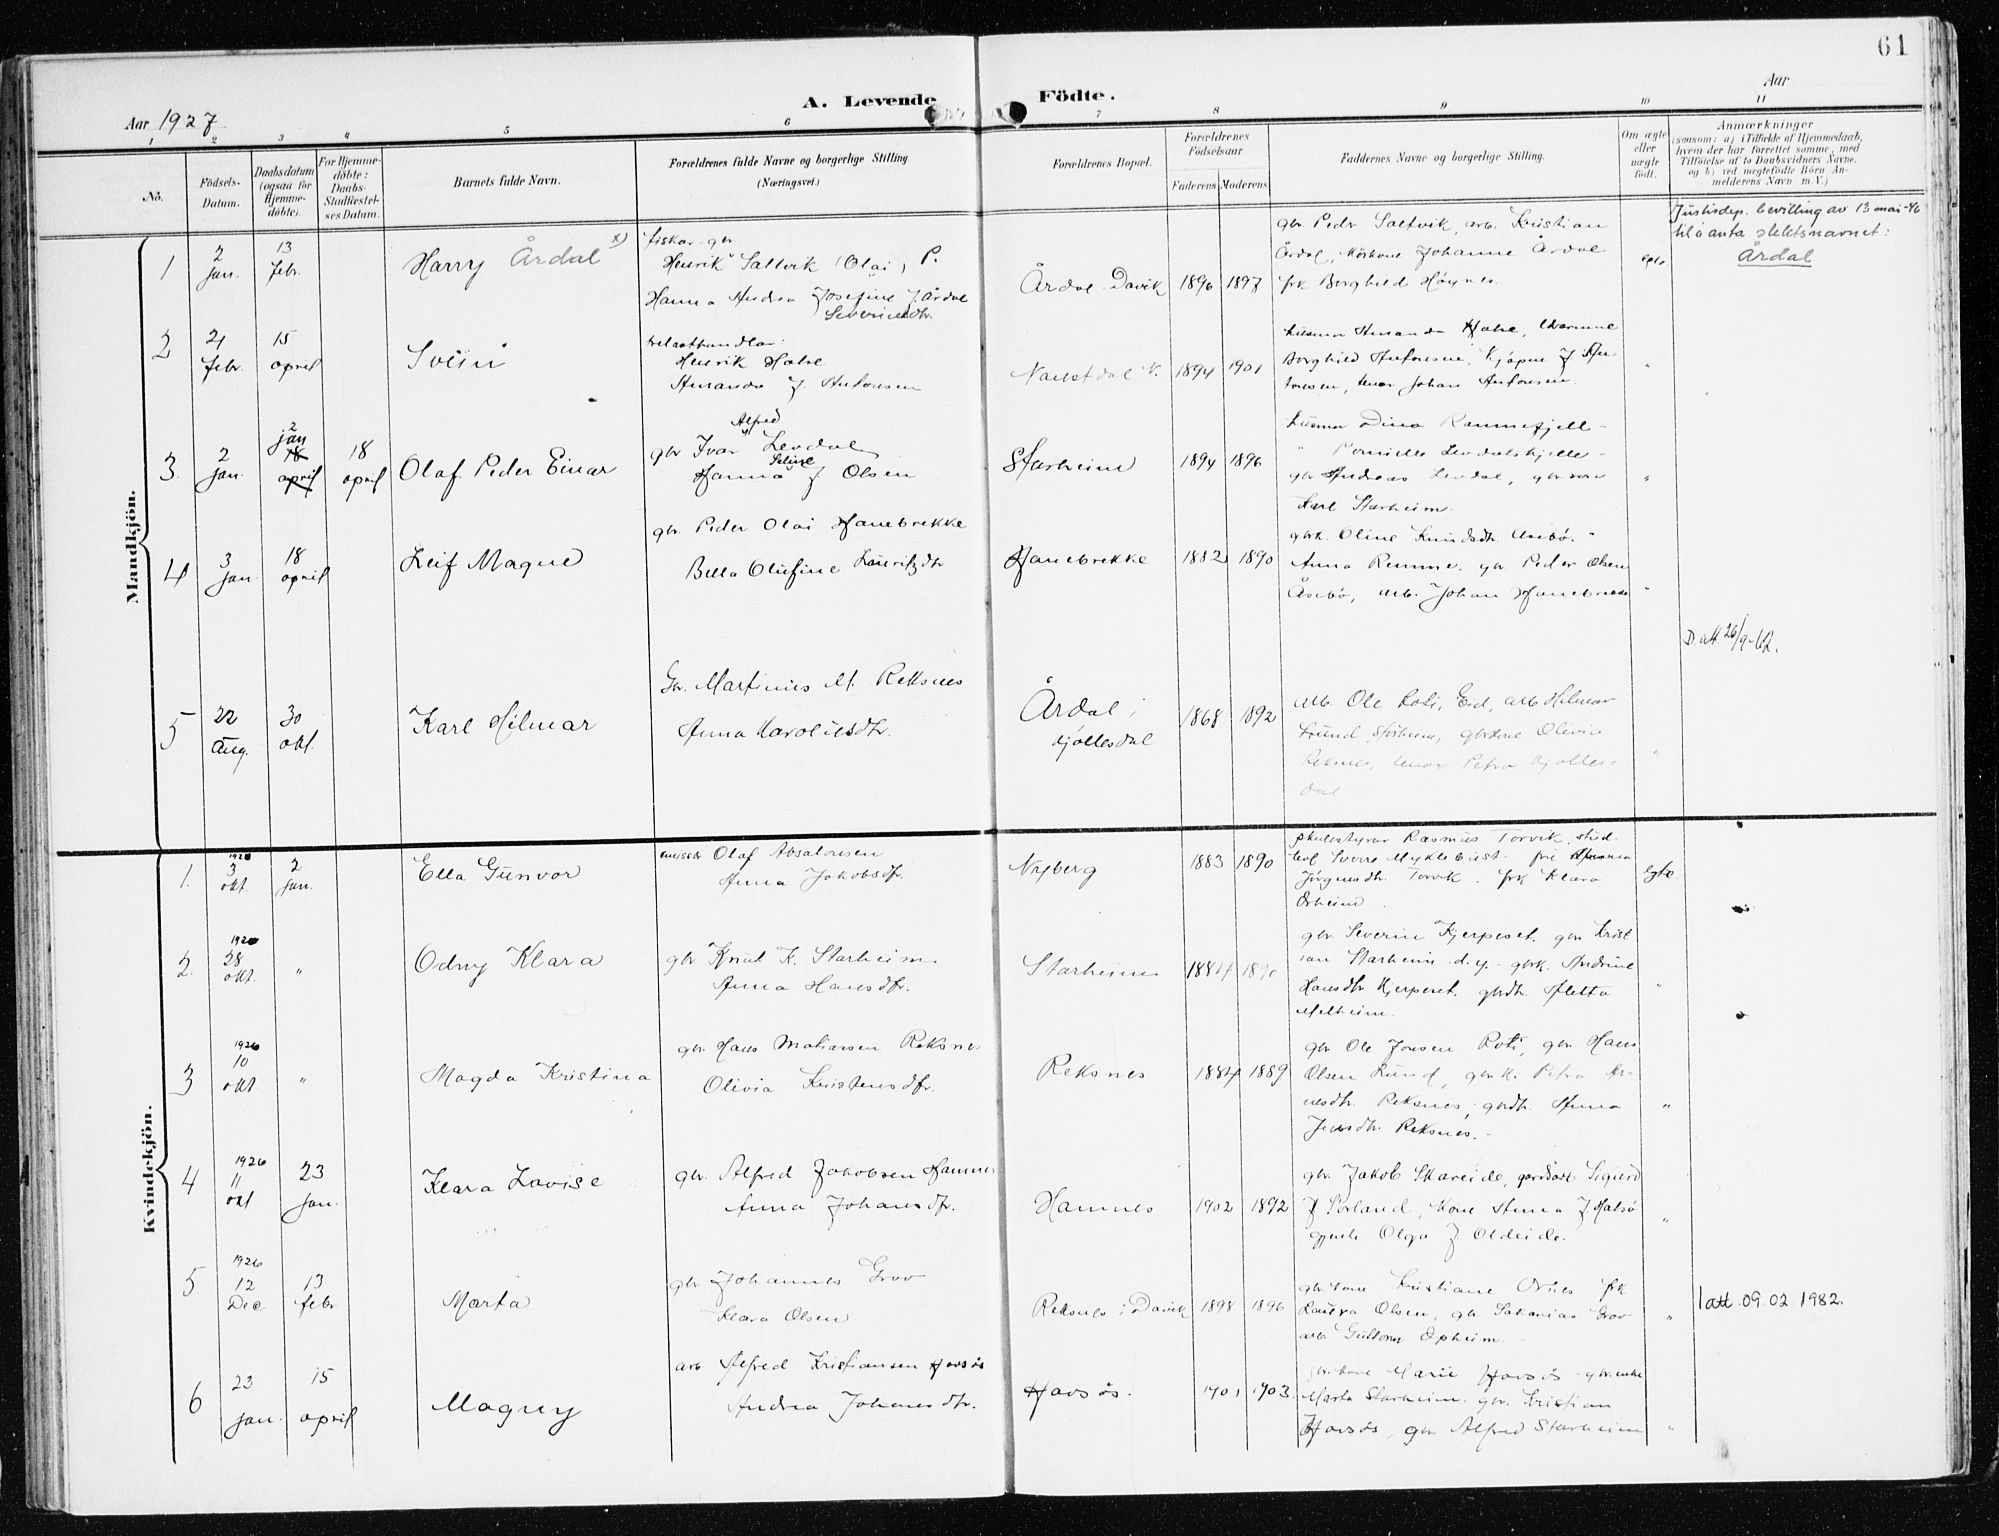 61
Aar 1927
A. Levende Födte.
Aar
1 2 3 4 5 6 7 8 9 10 11
No.
Födsels-Datum.
Daabsdatum (ogsaa for Hjemme-döbte).
For Hjemme-döbte: Daabs-Stadfæstel-ses Datum.
Barnets fulde Navn.
Forældrenes fulde Navne og borgerlige Stilling.
(Næringsvei.)
Forældrenes Bopæl.
Forældrenes Födselsaar.
Faderens Moderens
Faddernes Navne og borgerlige Stilling.
Om ægte eller uægte födt.
Anmærkninger
(saasom: a) i Tilfælde af Hjemmedaab, hvem der har forrettet samme, med Tilföielse af to Daabsvidners Navne, og b) ved uægtefödte Börn Anmelderens Navn m. V.)
Mandkjön.
1
2 jan.
13 febr.
Harry Årdal x)
fiskar gbr
Henrik Saltvik (Olai) P.
Hanna Andrea Josefine J Årdal
Severinsdtr.
Årdal Davik
1896 1897
gbr Peder Saltvik, arb. Kristian
Årdal, Johanne Årdal
frk Borghild Høynes.
egte
Justisdep. bevilling av 13 mai-46
til å anta slektsnavnet:
Årdal
2
21 febr.
15 april
Svein
Henrik Halse
Amanda J. Antonsen
Naustdal N.
1894 1901
Amanda Halse,
Borghild Antonsen, J An-
tonsen, Johan Antonsen.
"
3
2 jan.
2 jan
18 april
18 april
Olaf Peder Einar
Alfred
gbr Ivar Levdal
Seline
Hanna J Olsen
Starheim
1894 1896
Dina Rammefjell -
" Pernille Levdalshjelle -
gbr Andreas Levdal,
Karl Starheim.
"
4
3 jan.
18 april
Leif Magne
gbr. Peder Olai Hanebrekke
Bella Olufine Lauritzdtr
Hanebrekke
1882 1890
gbrk. Oline Knudsdtr. Åsebø. "
Anna Remme. gbr. Peder Olsen
Åsebø, arb. Johan Hanebrekke
"
D. att 26/9-62.
5
22 aug.
30 okt.
Karl Hilmar
Gbr. Martinus M. Reksnes
Anna Karolusdtr.
Årdal i
Kjøllesdal
1868 1892
arb. Ole Roti, Eid, arb Hilmar
Lund, gbrkone Olivia
Reksnes, Petra Kjølles-
dal
"
Kvindekjön.
1.
1926
3 okt.
2 jan.
Ella Gunvor
Olaf Absalonsen
Anna Jakobsdtr.
Nyberg
1883 1890
skulestyrar Rasmus Torvik, stud.
Sverre Myklebust. fru
Jörgensdtr. Torvik. frk Klara
Orheim.
egte
2.
1926
28 okt.
"
Odny Klara
gbr Knut K. Starheim
Anna Hansdtr.
Starheim
1884 1890
gbr. Severin Kjerpeset. gbr Krist
ian Starheim d.y. - gbrk. Andrine
Hansdtr Kjerpeset. gbrdtr. Aletta
Melheim.
"
3
1926
10 okt
"
Magda Kristina
gbr. Hans Mathiassen Reksnes
Olivia Kristensdtr.
Reksnes
1884 1889
gbr Ole Jonsen Roti, gbr. Hans
Olsen Lund, gbrk. Petra Ar-
nesdtr. Reksnes, gbrdtr. Anna
Jensdtr. Reksnes. -
"
4
1926
11 okt
23 jan.
Klara Lovise
gbr. Alfred Jakobsen Hamnes
Anna Johansdtr.
Hamnes
1902 1892
gbr. Jakob Skareide, Sigurd
J Sørland, kone Anna J. Halsø
gjente Olga J Oldeide.
"
5
1926
12 Dec
13 febr
Marta
gbr Johannes Grov
Klara Olsen
Reksnes i Davik
1898 1896
gbrkone Kristiane Ornes, frk
Laura Olsen, gbr. Sakarias Grov
arb Guttorm Opheim. -
"
1 att. 09.02.1982.
6
23 jan.
15 april
Magny
arb Alfred Kristiansen Havsøs
Andrea Johansdtr.
Havsøs.
1901 1903
gbrkone Marie Havsøs -
Marta Starheim. gbr. Kristian
Havsøs, gbr Alfred Starheim
"